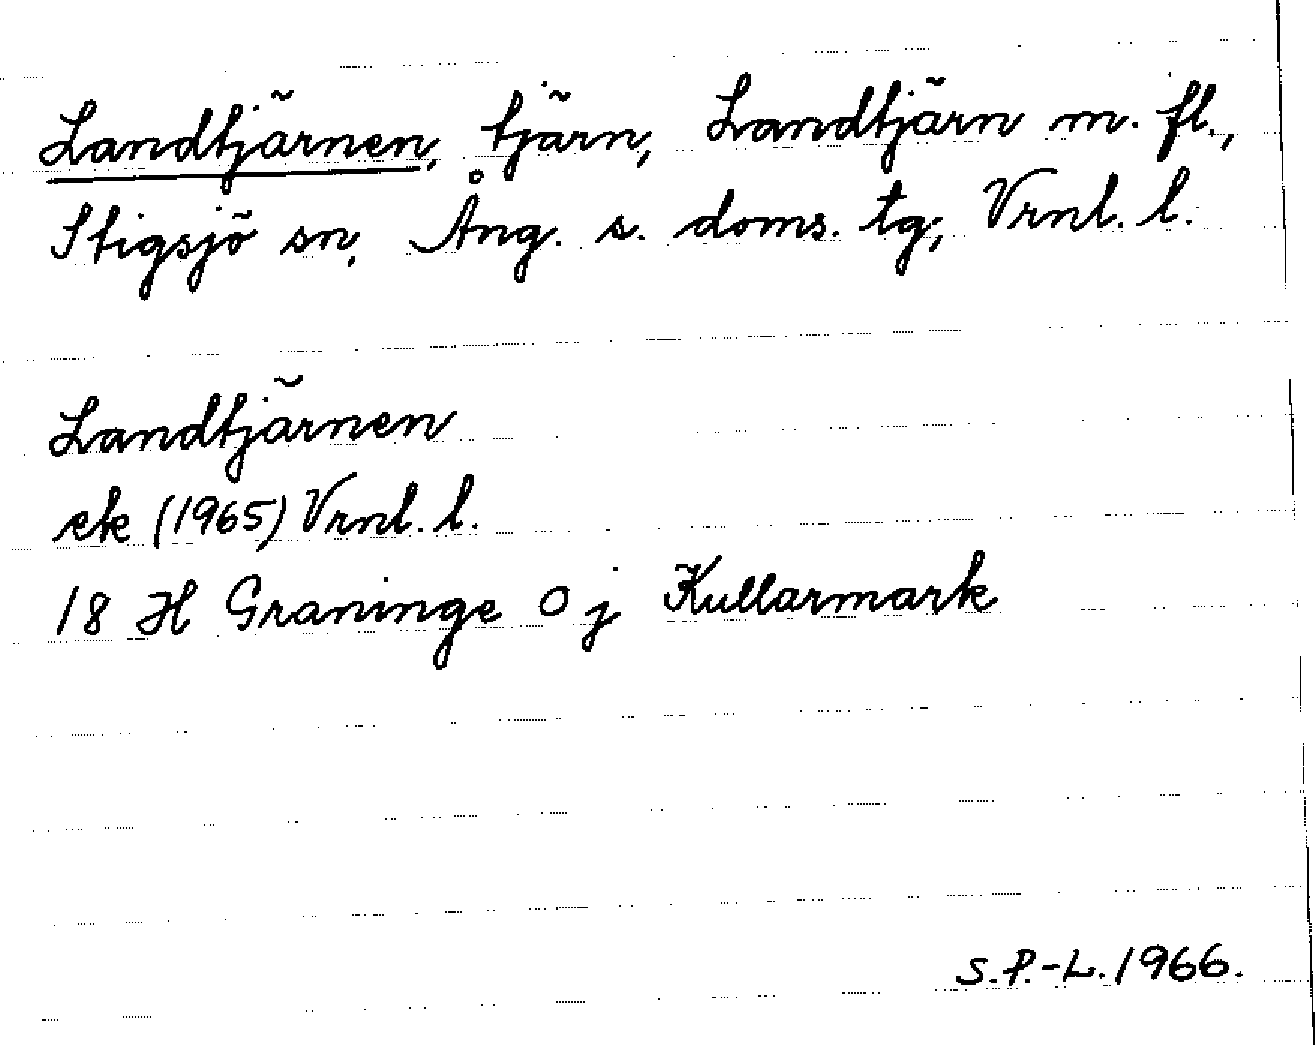 Landtjärnen, tjärn, Landtjärn m. fl.,
Stigsjö sn, Ång. s. doms. tg, Vrnl. l.
Landtjärnen
ek (1965) Vrnl. l.
18 H Graninge O j Kullarmark
S.P.-L. 1966.